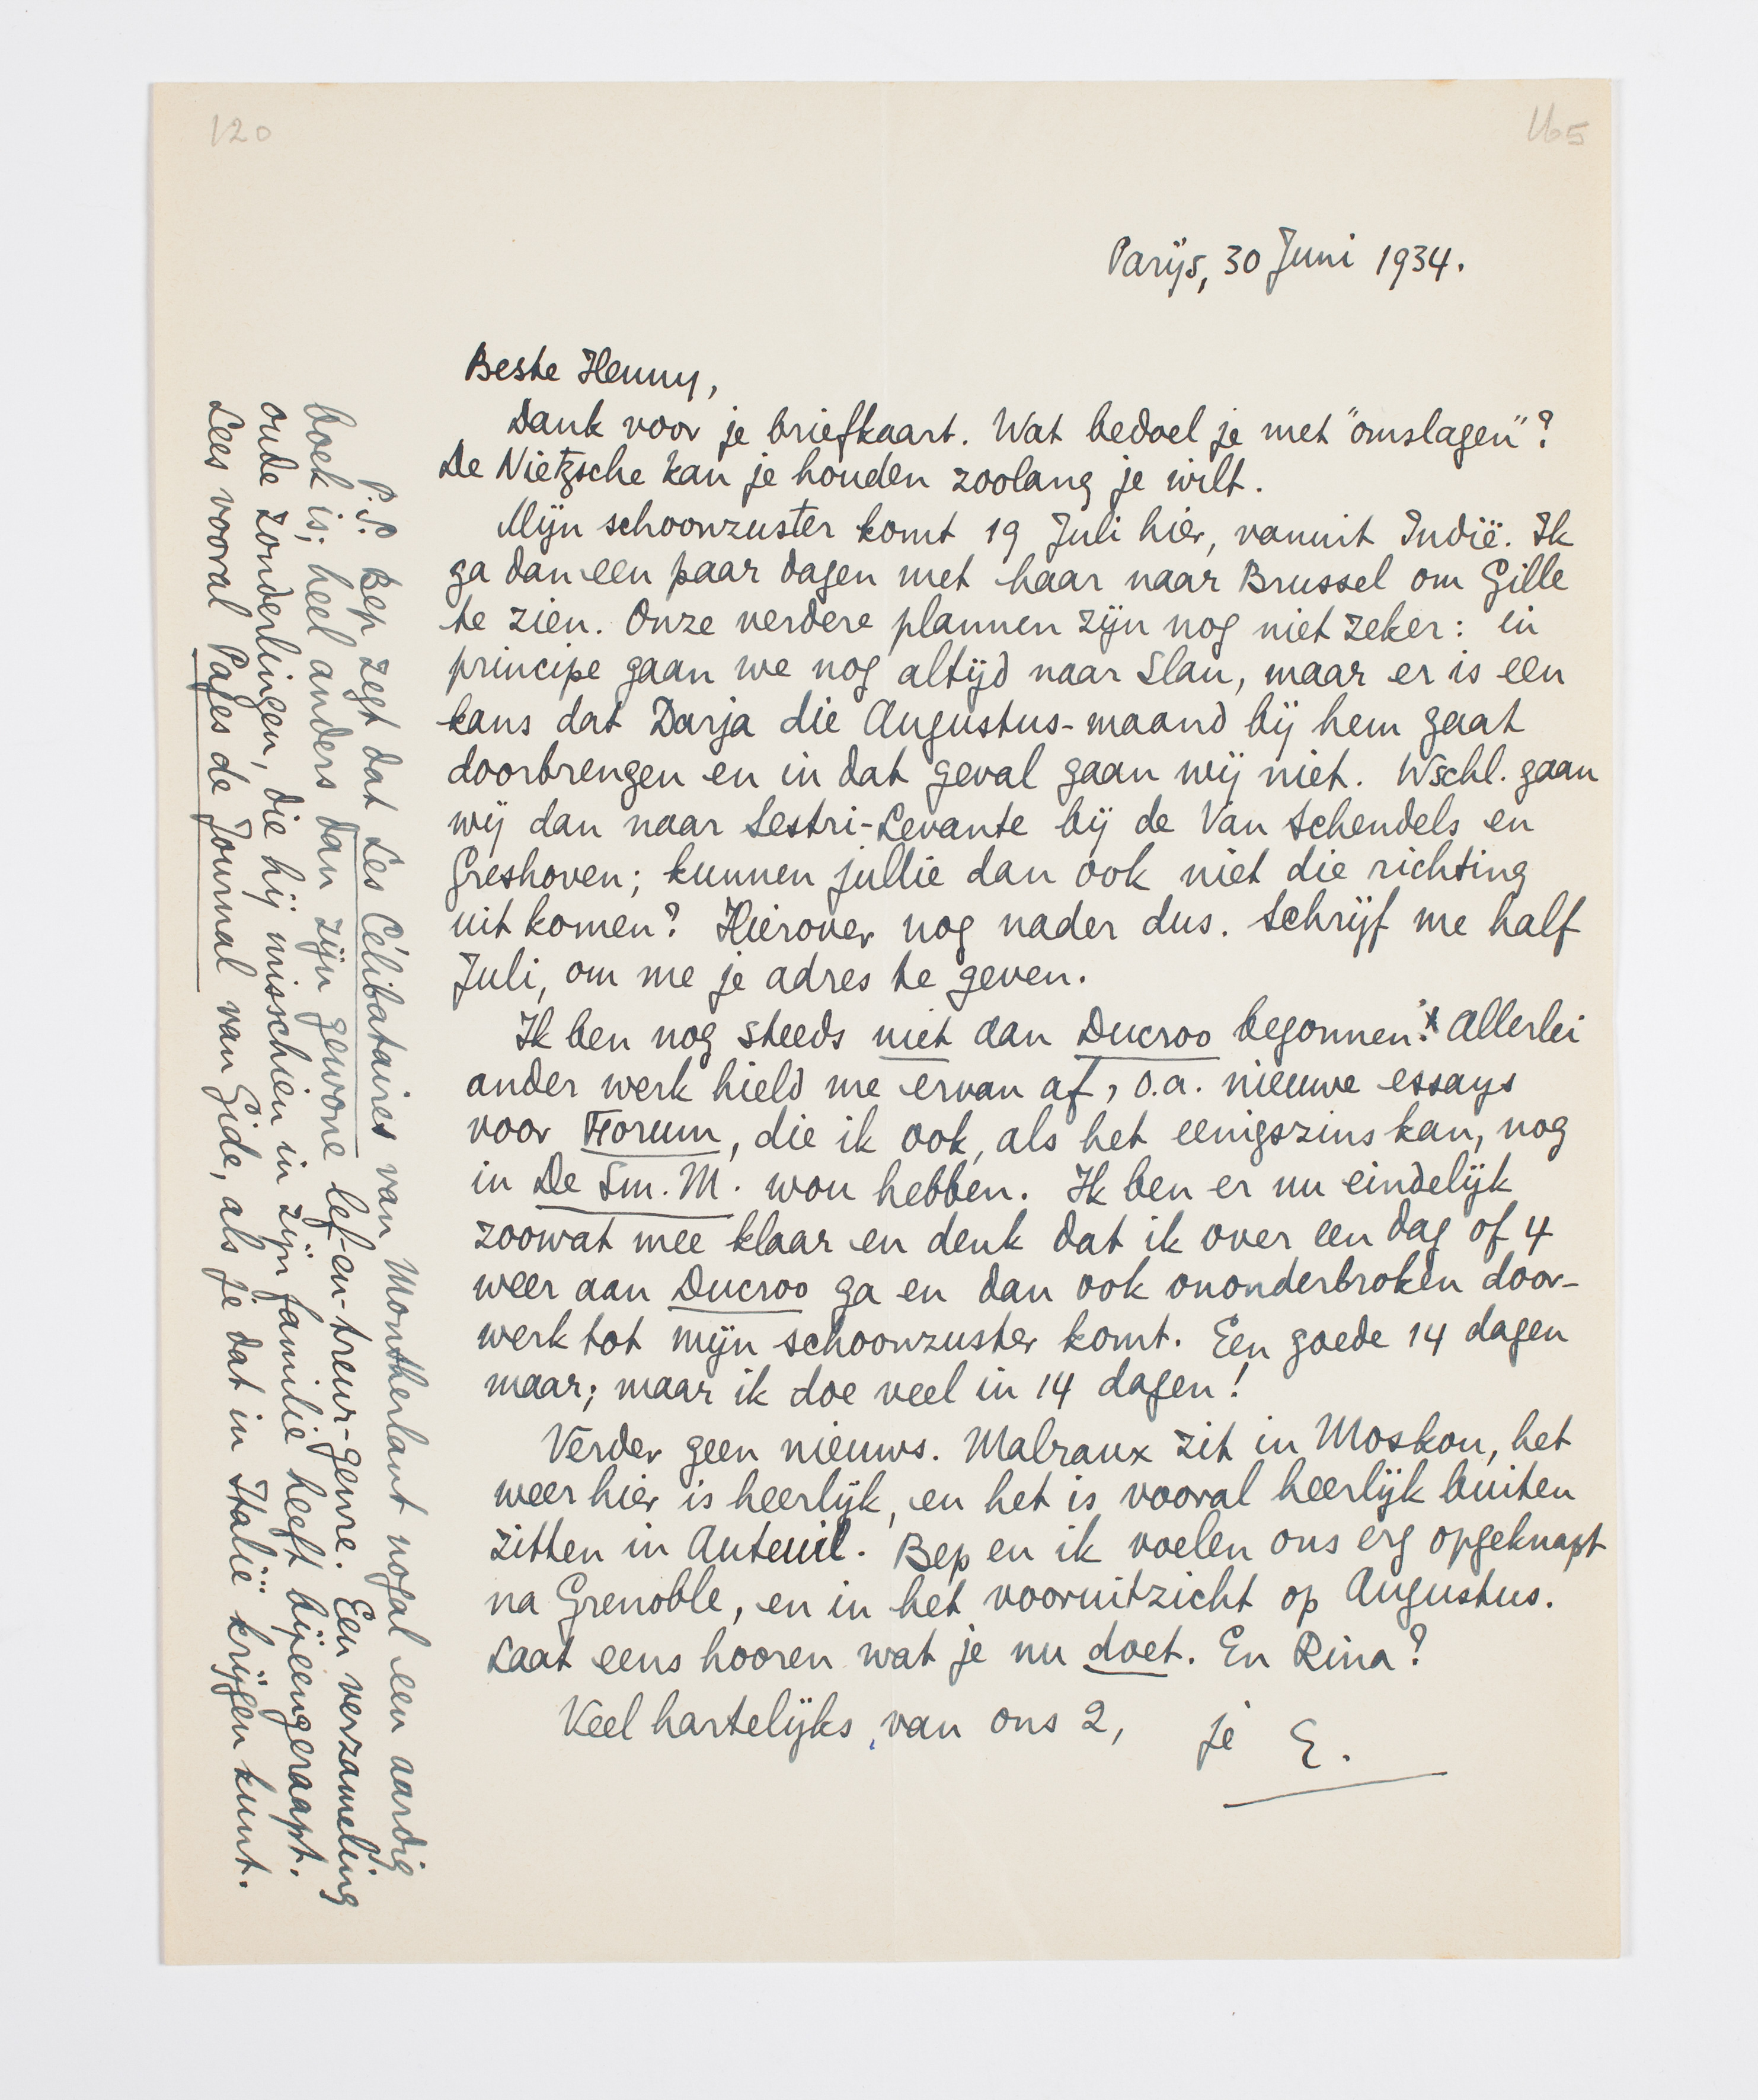 120
165
Parijs, 30 Juni 1934.
Beste Henny,
Dank voor je briefkaart. Wat bedoel je met "omslagen"?
De Nietzsche kan je houden zoolang je wilt.
Mijn schoonzuster komt 19 Juli hier, vanuit Indië. Ik
ga dan een paar dagen met haar naar Brussel om Gille
te zien. Onze verdere plannen zijn nog niet zeker: in
principe gaan we nog altijd naar Slau, maar er is een
kans dat Darja die Augustus-maand bij hem gaat
doorbrengen en in dat geval gaan wij niet. Wschl. gaan
wij dan naar Sestri-Levante bij de Van Schendels en
Greshoven; kunnen jullie dan ook niet die richting
uit komen? Hierover nog nader dus. Schrijf me half
Juli, om me je adres te geven.
Ik ben nog steeds niet aan Ducroo begonnen! Allerlei
ander werk hield me ervan af, o.a. nieuwe essays
voor Forum, die ik ook, als het eenigszins kan, nog
in De Sm. M. wou hebben. Ik ben er nu eindelijk
zoowat mee klaar en denk dat ik over een dag of 4
weer aan Ducroo ga en dan ook ononderbroken door-
werk tot mijn schoonzuster komt. Een goede 14 dagen
maar; maar ik doe veel in 14 dagen!
Verder geen nieuws. Malraux zit in Moskou, het
weer hier is heerlijk, en het is vooral heerlijk buiten
zitten in Auteuil. Bep en ik voelen ons erg opgeknapt
na Grenoble, en in het vooruitzicht op Augustus.
Laat eens hooren wat je nu doet. En Rina?
Veel hartelijks van ons 2, je E.
P.S. Bep zegt dat Les Célibataires van Montherlant nogal een aardig
boek is; heel anders dan zijn gewone lef-en-treur-genre. Een verzameling
oude zonderlingen, die hij misschien in zijn familie heeft bijeengeraapt.
Lees vooral Pages de Journal van Gide, als je dat in Italië krijgen kunt.